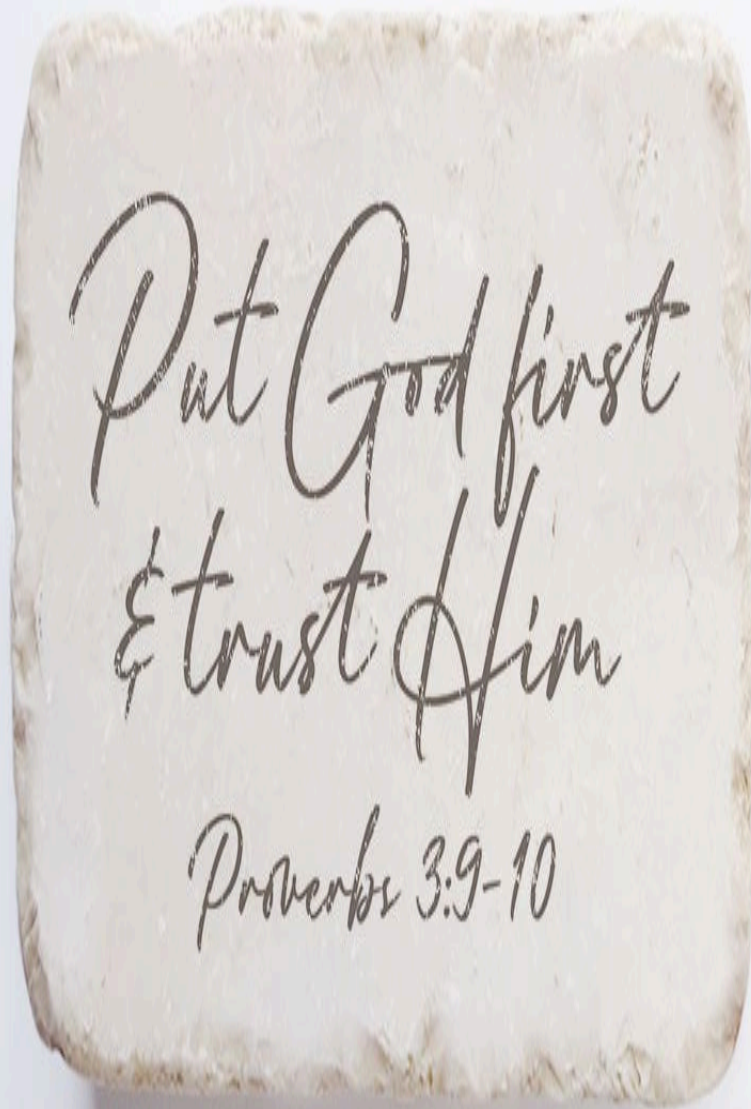 Put God first
& trust Him
Proverbs 3:9-10